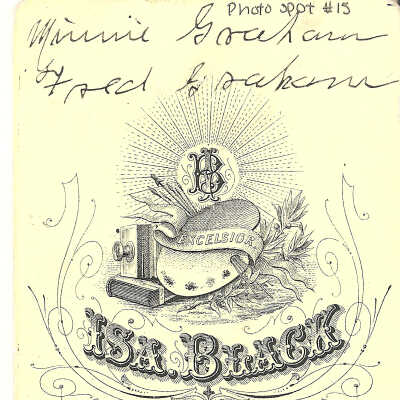 Photo spot #15
Minnie Graham
Fred Graham
IB
EXCELSIOR
ISA. BLACK